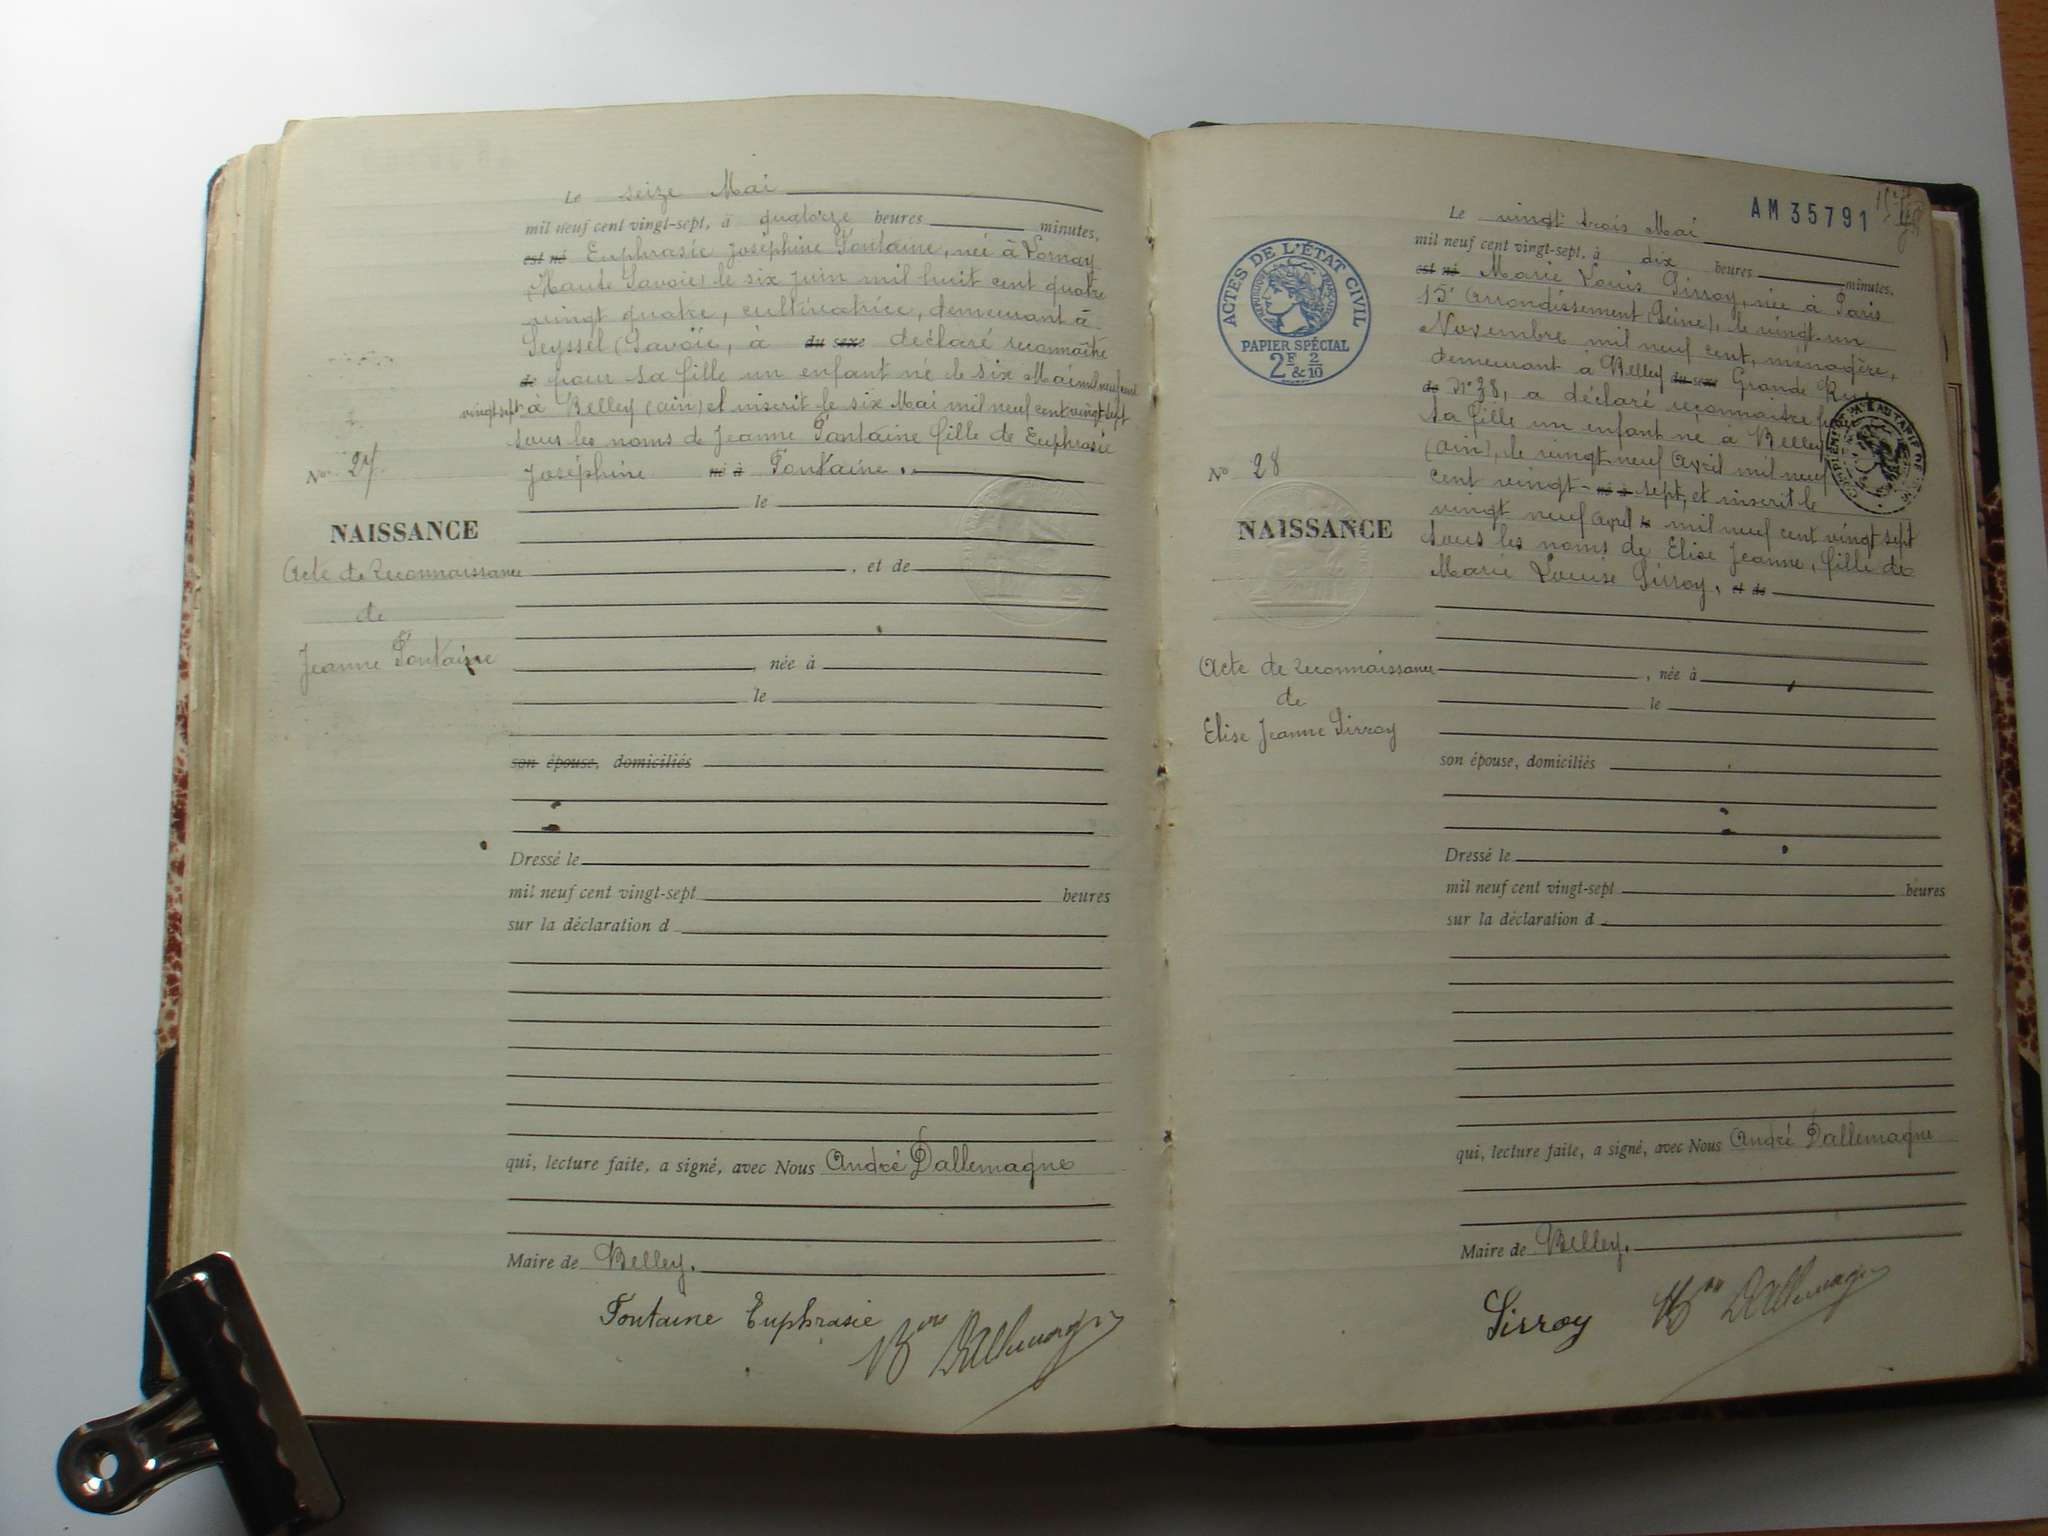 Le seize Mai
mil neuf cent vingt-sept, à quatorze heures minutes,
est né Euphrasie Joséphine Fontaine, née à Lornay
(Haute Savoie) le six juin mil huit cent quatre
vingt quatre, cultivatrice, demeurant à
Seyssel (Savoïe, à du sexe déclaré reconnaître
de pour sa fille un enfant né le six Mai mil neuf cent
vingt sept à Belley (ain) et inscrit le six Mai mil neuf cent vingt sept
sous les noms de Jeanne Fontaine fille de Euphrasie
No. 27 Joséphine né à Fontaine.
le
NAISSANCE
Acte de reconnaissance , et de
de
Jeanne Fontaine , née à
le
son épouse, domiciliés
Dressé le
mil neuf cent vingt-sept heures
sur la déclaration d
qui, lecture faite, a signé, avec Nous André Dallemagne
Maire de Belley.
Fontaine Euphrasie
Bon Dallemagne
AM 35791
ACTES DE L'ÉTAT CIVIL
RÉPUBLIQUE FRANÇAISE
PAPIER SPÉCIAL
2F & 2/10
Le vingt trois Mai
mil neuf cent vingt-sept, à dix heures minutes.
est né Marie Louis Sirroy, née à Paris
15e Arrondissement (Seine), le vingt un
Novembre mil neuf cent, ménagère,
demeurant à Belley du sexe Grande Rue
de No 38, a déclaré reconnaitre pour
sa fille un enfant né à Belley
(ain), le vingt neuf Avril mil neuf
No 28 cent vingt- né à sept, et inscrit le
vingt neuf Avril le mil neuf cent vingt sept
NAISSANCE
sous les noms de Elise Jeanne, fille de
Marie Louise Sirroy, et de
Acte de reconnaissance , née à
de le
Elise Jeanne Sirroy
son épouse, domiciliés
Dressé le
mil neuf cent vingt-sept heures
sur la déclaration d
qui, lecture faite, a signé, avec Nous André Dallemagne
Maire de Belley.
Sirroy
Bon Dallemagne